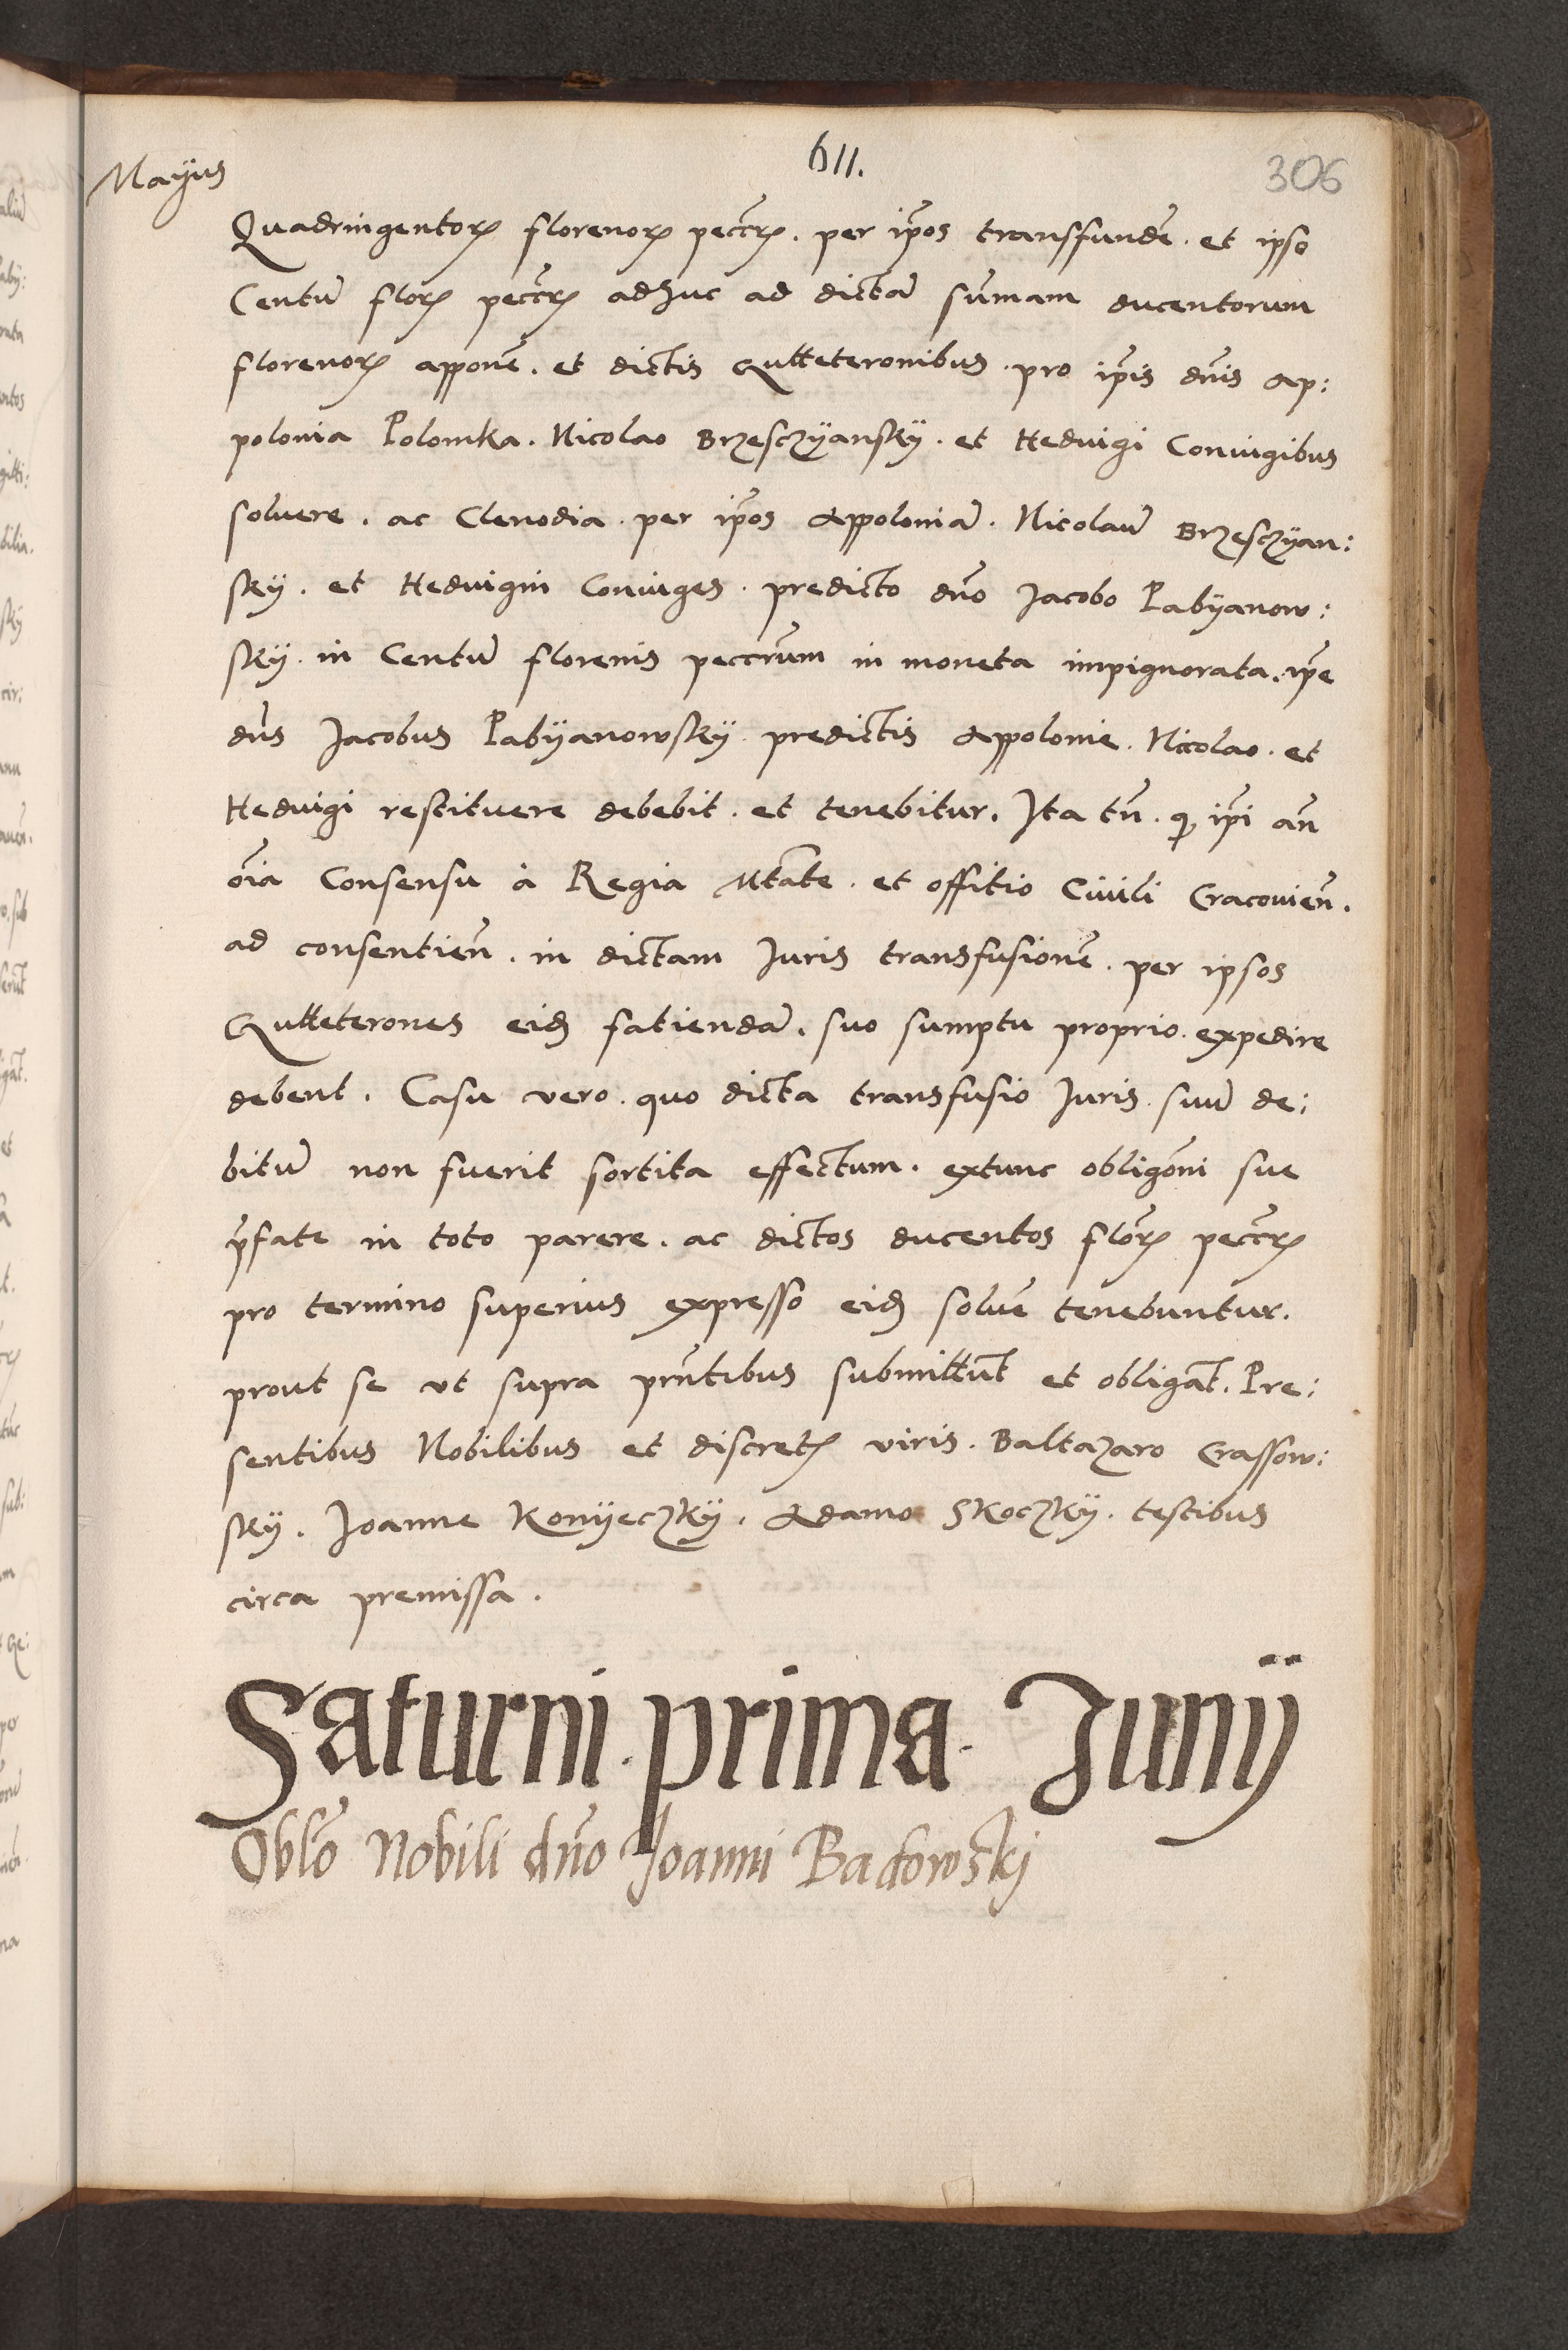 611.
306
Mayus
Quadringentorꝝ florenorꝝ pecc̃rꝝ. per ip̃os transfunde͂. et ipso
Centũ florꝝ pecc̃rꝝ adhuc ad dictã sũmam ducentorum
florenorꝝ appone͂. et dictis Qutteteronibus. pro ip̃is dñis Ap:
polonia Polomka. Nicolao Brzesczÿanskÿ. et Hedvigi Coniugibus
soluere. ac Clenodia. per ip̃os Appoloniã. Nicolaũ Brzesczÿan:
skÿ. et Hedvigim Coniuges. predicto dño Jacobo Pabÿanow:
skÿ. in Centũ florenis peccrũm in moneta impignorata. ip̃e
dñs Jacobus Pabÿanowskÿ. predictis Appolonie. Nicolao. et
Hedvigi restituere debebit. et tenebitur. Ita tñ. ꝙ ip̃i añ
oĩa Consensu à Regia Mtãte. et offitio Ciuili Cracouieñ.
ad consentieñ. in dictam Juris transfusione͂. per ipsos
Qutteterones eidꝫ fatiendã. suo sumptu proprio. expedire
debent. Casu vero. quo dicta transfusio Juris. suũ de:
bitũ non fuerit sortita effectum. extunc obligõni sue
p̃fate in toto parere. ac dictos ducentos flõrꝝ pecc̃rꝝ
pro termino superius expresso eidꝫ solue͂ tenebuntur.
prout se vt supra prñtibus submittũt et obligãt. Pre:
sentibus Nobilibus et discretꝭ viris. Baltazaro Crassow:
skÿ. Joanne Konÿeczkÿ. Adamo Skoczkÿ. testibus
circa premissa.
Saturni. prima. Junÿ
Oblõ Nobili dño Joanni Badowski